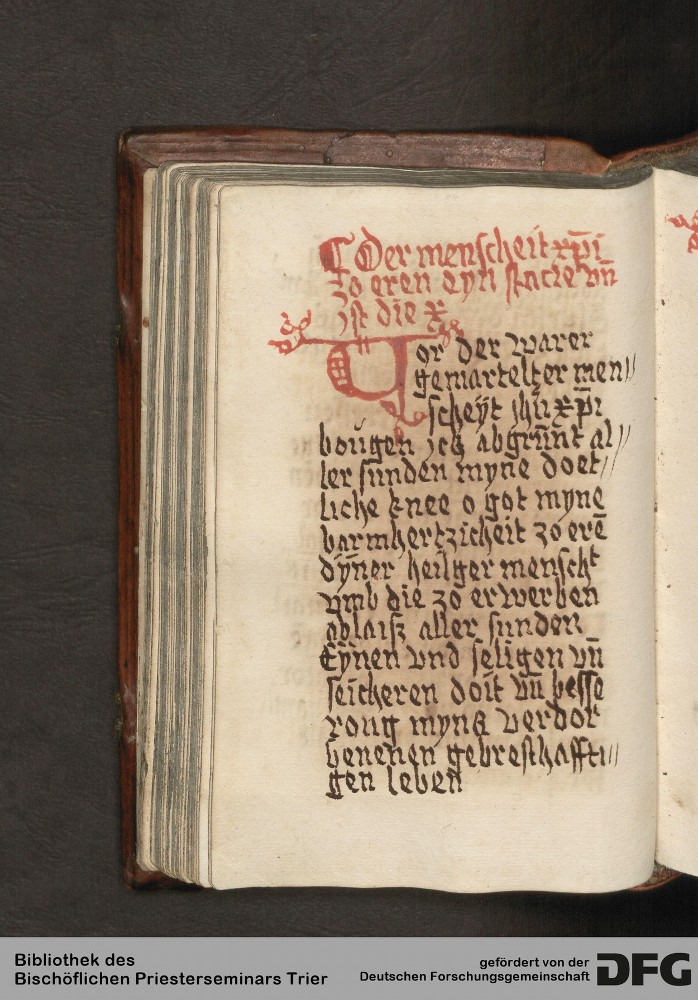 ¶ Der menscheit xp̅i
zo eren eyn stacie vn̅
jst die x
Vor der warer
gemarteltzer men//
scheyt jhu xp̅i
bougen ich abgrunt al//
ler sunden myne doet//
liche knee o got myne
barmhertzicheit zo ere̅
dyner heilger menscht
vmb die zo erwerben
ablaisz aller sunden
Eynen vnd seligen vn̅
seicheren doit vn̅ besse
roug myns verdor
benenen gebresthaffti//
gen leben
Bibliothek des
Bischöflichen Priesterseminars Trier
gefördert von der
Deutschen Forschungsgemeinschaft
DFG